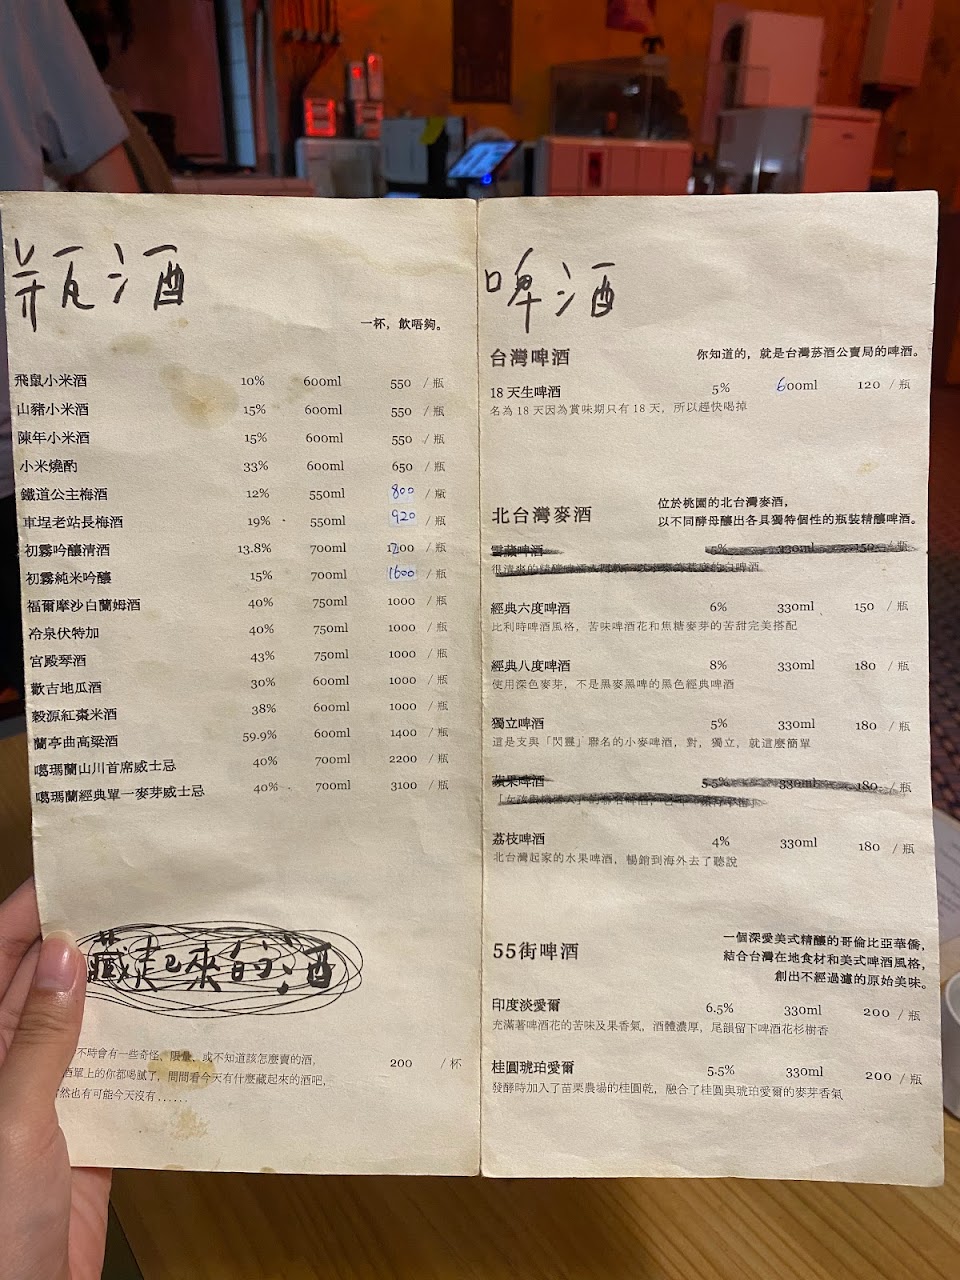 瓶酒
一杯，飲唔夠。
飛鼠小米酒 10% 600ml 550 / 瓶
山豬小米酒 15% 600ml 550 / 瓶
陳年小米酒 15% 600ml 550 / 瓶
小米燒酌 33% 600ml 650 / 瓶
鐵道公主梅酒 12% 550ml 800 / 瓶
車埕老站長梅酒 19% 550ml 920 / 瓶
初霧吟釀清酒 13.8% 700ml 1200 / 瓶
初霧純米吟釀 15% 700ml 1600 / 瓶
福爾摩沙白蘭姆酒 40% 750ml 1000 / 瓶
冷泉伏特加 40% 750ml 1000 / 瓶
宮殿琴酒 43% 750ml 1000 / 瓶
歡吉地瓜酒 30% 600ml 1000 / 瓶
穀源紅棗米酒 38% 600ml 1000 / 瓶
蘭亭曲高粱酒 59.9% 600ml 1400 / 瓶
噶瑪蘭山川首席威士忌 40% 700ml 2200 / 瓶
噶瑪蘭經典單一麥芽威士忌 40% 700ml 3100 / 瓶
藏起來的酒
不時會有一些奇怪、限量、或不知道該怎麼賣的酒，
酒單上的你都喝膩了，問問看今天有什麼藏起來的酒吧，
然也有可能今天沒有......
200 / 杯
啤酒
台灣啤酒 你知道的，就是台灣菸酒公賣局的啤酒。
18 天生啤酒 5% 600ml 120 / 瓶
名為 18 天因為賞味期只有 18 天，所以趕快喝掉
北台灣麥酒
位於桃園的北台灣麥酒，
以不同酵母釀出各具獨特個性的瓶裝精釀啤酒。
雪藏啤酒 5% 330ml 150 / 瓶
很清爽的精釀啤酒
白啤酒
經典六度啤酒 6% 330ml 150 / 瓶
比利時啤酒風格，苦味啤酒花和焦糖麥芽的苦甜完美搭配
經典八度啤酒 8% 330ml 180 / 瓶
使用深色麥芽，不是黑麥黑啤的黑色經典啤酒
獨立啤酒 5% 330ml 180 / 瓶
這是支與「閃靈」聯名的小麥啤酒，對，獨立，就這麼簡單
蘋果啤酒 5.5% 330ml 180 / 瓶
荔枝啤酒 4% 330ml 180 / 瓶
北台灣起家的水果啤酒，暢銷到海外去了聽說
55街啤酒
一個深愛美式精釀的哥倫比亞華僑，
結合台灣在地食材和美式啤酒風格，
創出不經過濾的原始美味。
印度淡愛爾 6.5% 330ml 200 / 瓶
充滿著啤酒花的苦味及果香氣，酒體濃厚，尾韻留下啤酒花杉樹香
桂圓琥珀愛爾 5.5% 330ml 200 / 瓶
發酵時加入了苗栗農場的桂圓乾，融合了桂圓與琥珀愛爾的麥芽香氣